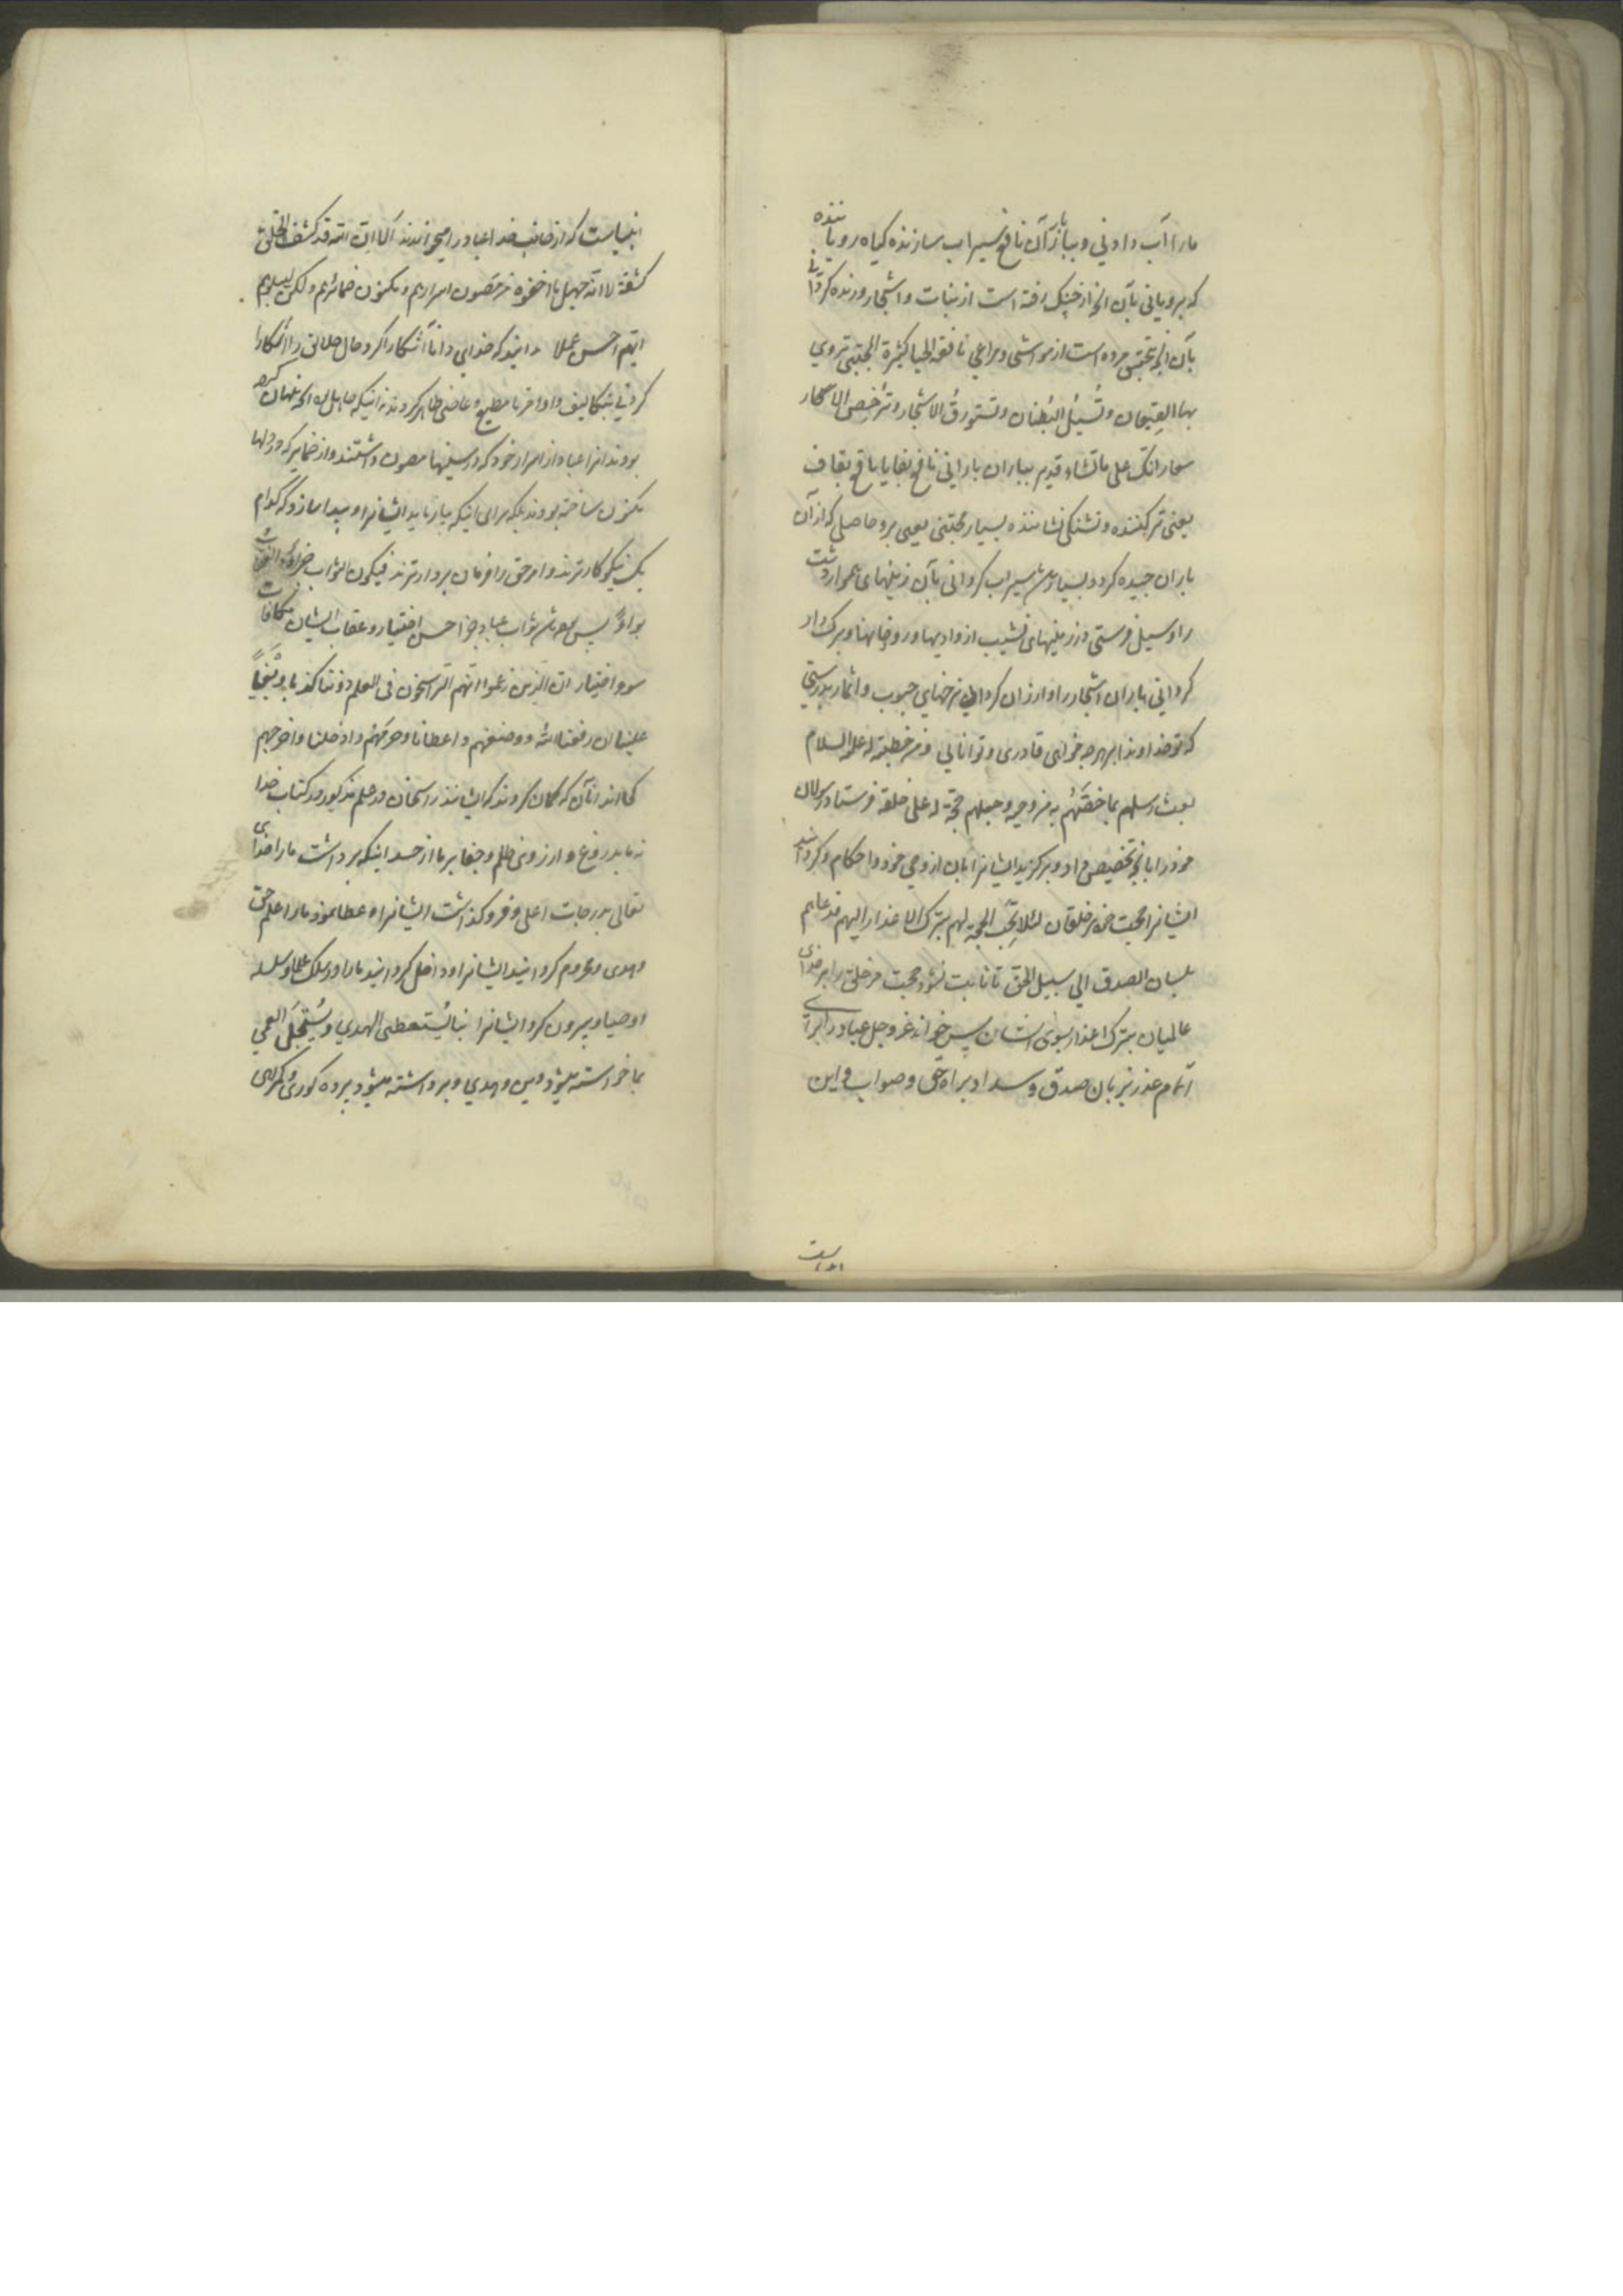 ما را آب دادنی و بباز آن نافع سیراب سازنده گیاه رویاننده
که برویانی بآن آنچه از چنگ رفته است از نبات و اشجار و زنده گردانی
بآن آنچه بتحقیق مرده است از مواشی و مراعی نافعة الحیا کثیرة المجتنی تروی
بها القیعان و تُسیلُ البُطنان و تستورقُ الاشجار و ترخص الاسعار
انک علی ما تشاء قدیر بباران بارانی نافع
یعنی تر کننده و تشنگی نشاننده بسیار مجتنی یعنی بر و حاصلی که از آن
باران چیده گردد بسیار سیراب گردانی بآن زمینهای هموار دشت
را و سیل فرستی در زمینهای نشیب از وادیها و رودخانها و برگ دار
گردانی بباران اشجار را و ارزان گردانی نرخهای حبوب و اثمار بدرستی
که تو خداوندا بر هر چه خواهی قادری و توانایی و من خطبة له علیه السلام
بعث رسلهم بما خصّهُم به من وحیه و جعلهم حجّة له علی خلقه فرستاد رسولان
خود را بآنچه تخصیص داد و برگزید ایشانرا بآن از وحی خود و احکام و گردانید
ایشانرا حجت خود بر خلقان لئلا تجب الحجة لهم بترک الاعذار الیهم فدعاهم
بلسان الصدق الی سبیل الحق تا ثابت نشود حجت مر خلق را بر خدای
عالمیان بترک اعذار بسوی ایشان پس خواند عز و جل عباد را برای
اتمام عذر بزبان صدق و سداد براه حق و صواب و این
انبیاست
انبیاست که از جانب خدا عباد را میخوانند الا ان الله قد کشف الخلق
کشفة لا انه جهل ما اخفوه من مصون اسرارهم و مکنون ضمائرهم و لکن لیبلوهم
ایهم احسن عملا دانید که خدای دانا آشکارا کرد حال خلائق را آشکارا
کردنی بتکالیف و اوامر تا مطیع و عاصی ظاهر گردند نه اینکه جاهل بود آنچه پنهان کرده
بودند آنرا عباد از اسرار خود که در سینها مصون داشتند و از ضمایر که در دلها
مکنون ساخته بودند بلکه برای اینکه بیازماید ایشانرا و پیدا سازد که کدام
یک نیکوکارترند و امر حق را فرمان بردارترند فیکون الثواب جزاء و العقاب
بواءً پس باشد ثواب عباد جزا حسن اختیار و عقاب ایشان مکافات
سوء اختیار این الذین زعموا انهم الراسخون فی العلم دوننا کذبا و بغیاً
علینا ان رفعنا الله و وضعهم و اعطانا و حرمهم و ادخلنا و اخرجهم
کجااند آنان که گمان کردند که ایشانند راسخان در علم مذکور در کتاب خدا
نه ما بدروغ و از روی ظلم و جفا بر ما از حسد اینکه برداشت ما را خدای
تعالی بدرجات اعلی و فرو گذاشت ایشانرا و عطا نمود ما را علم حق
و هدی و محروم گردانید ایشانرا و داخل گردانید ما را در سلک علما و سلسله
اوصیا و بیرون کرد ایشانرا بنا یُستعطی الهدی و یُستجلَی العمی
بما خواسته میشود دین و هدی و برداشته میشود پرده کوری و گمرهی